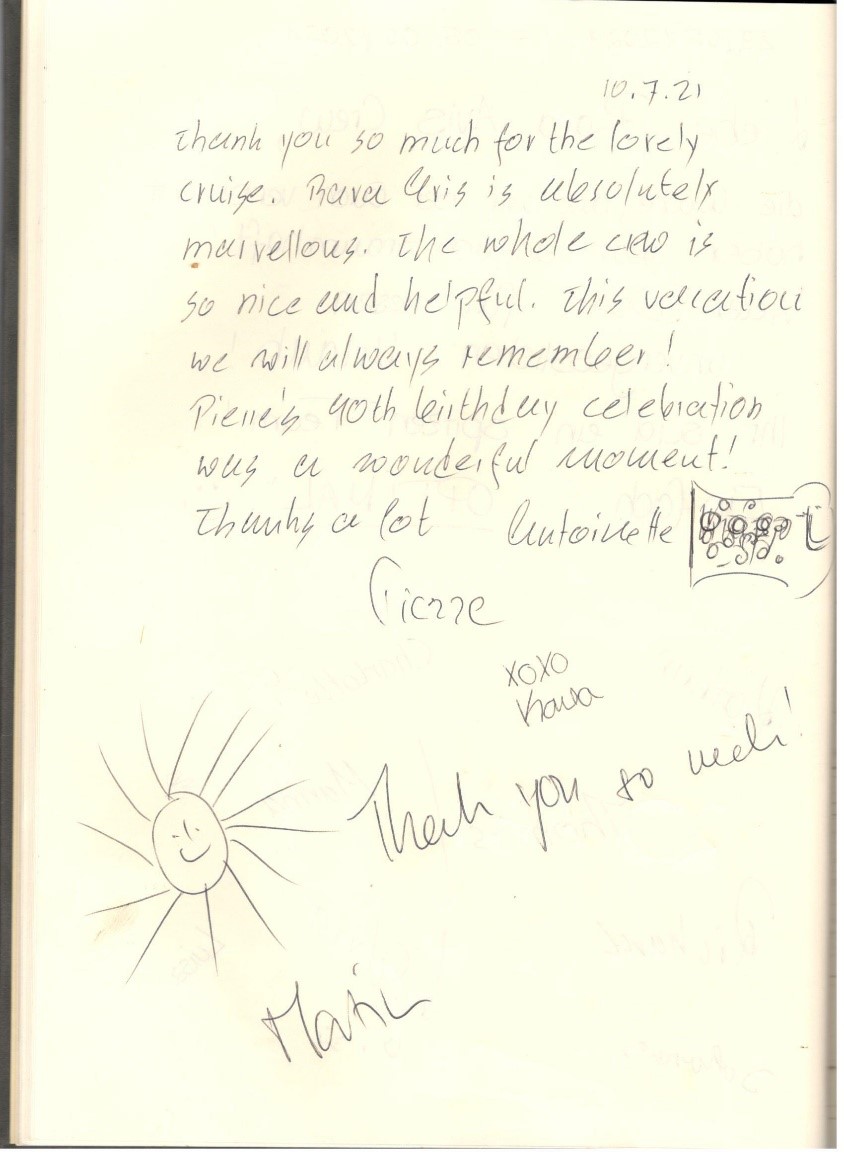 10.7.21
Thank you so much for the lovely
cruise. Bara Aris is absolutely
marvellous. The whole crew is
so nice and helpful. This vacation
we will always remember!
Pierre's 40th birthday celebration
was a wonderful moment!
Thanks a lot Antoinette
Pierre
XOXO
Thank you so much!
Martin